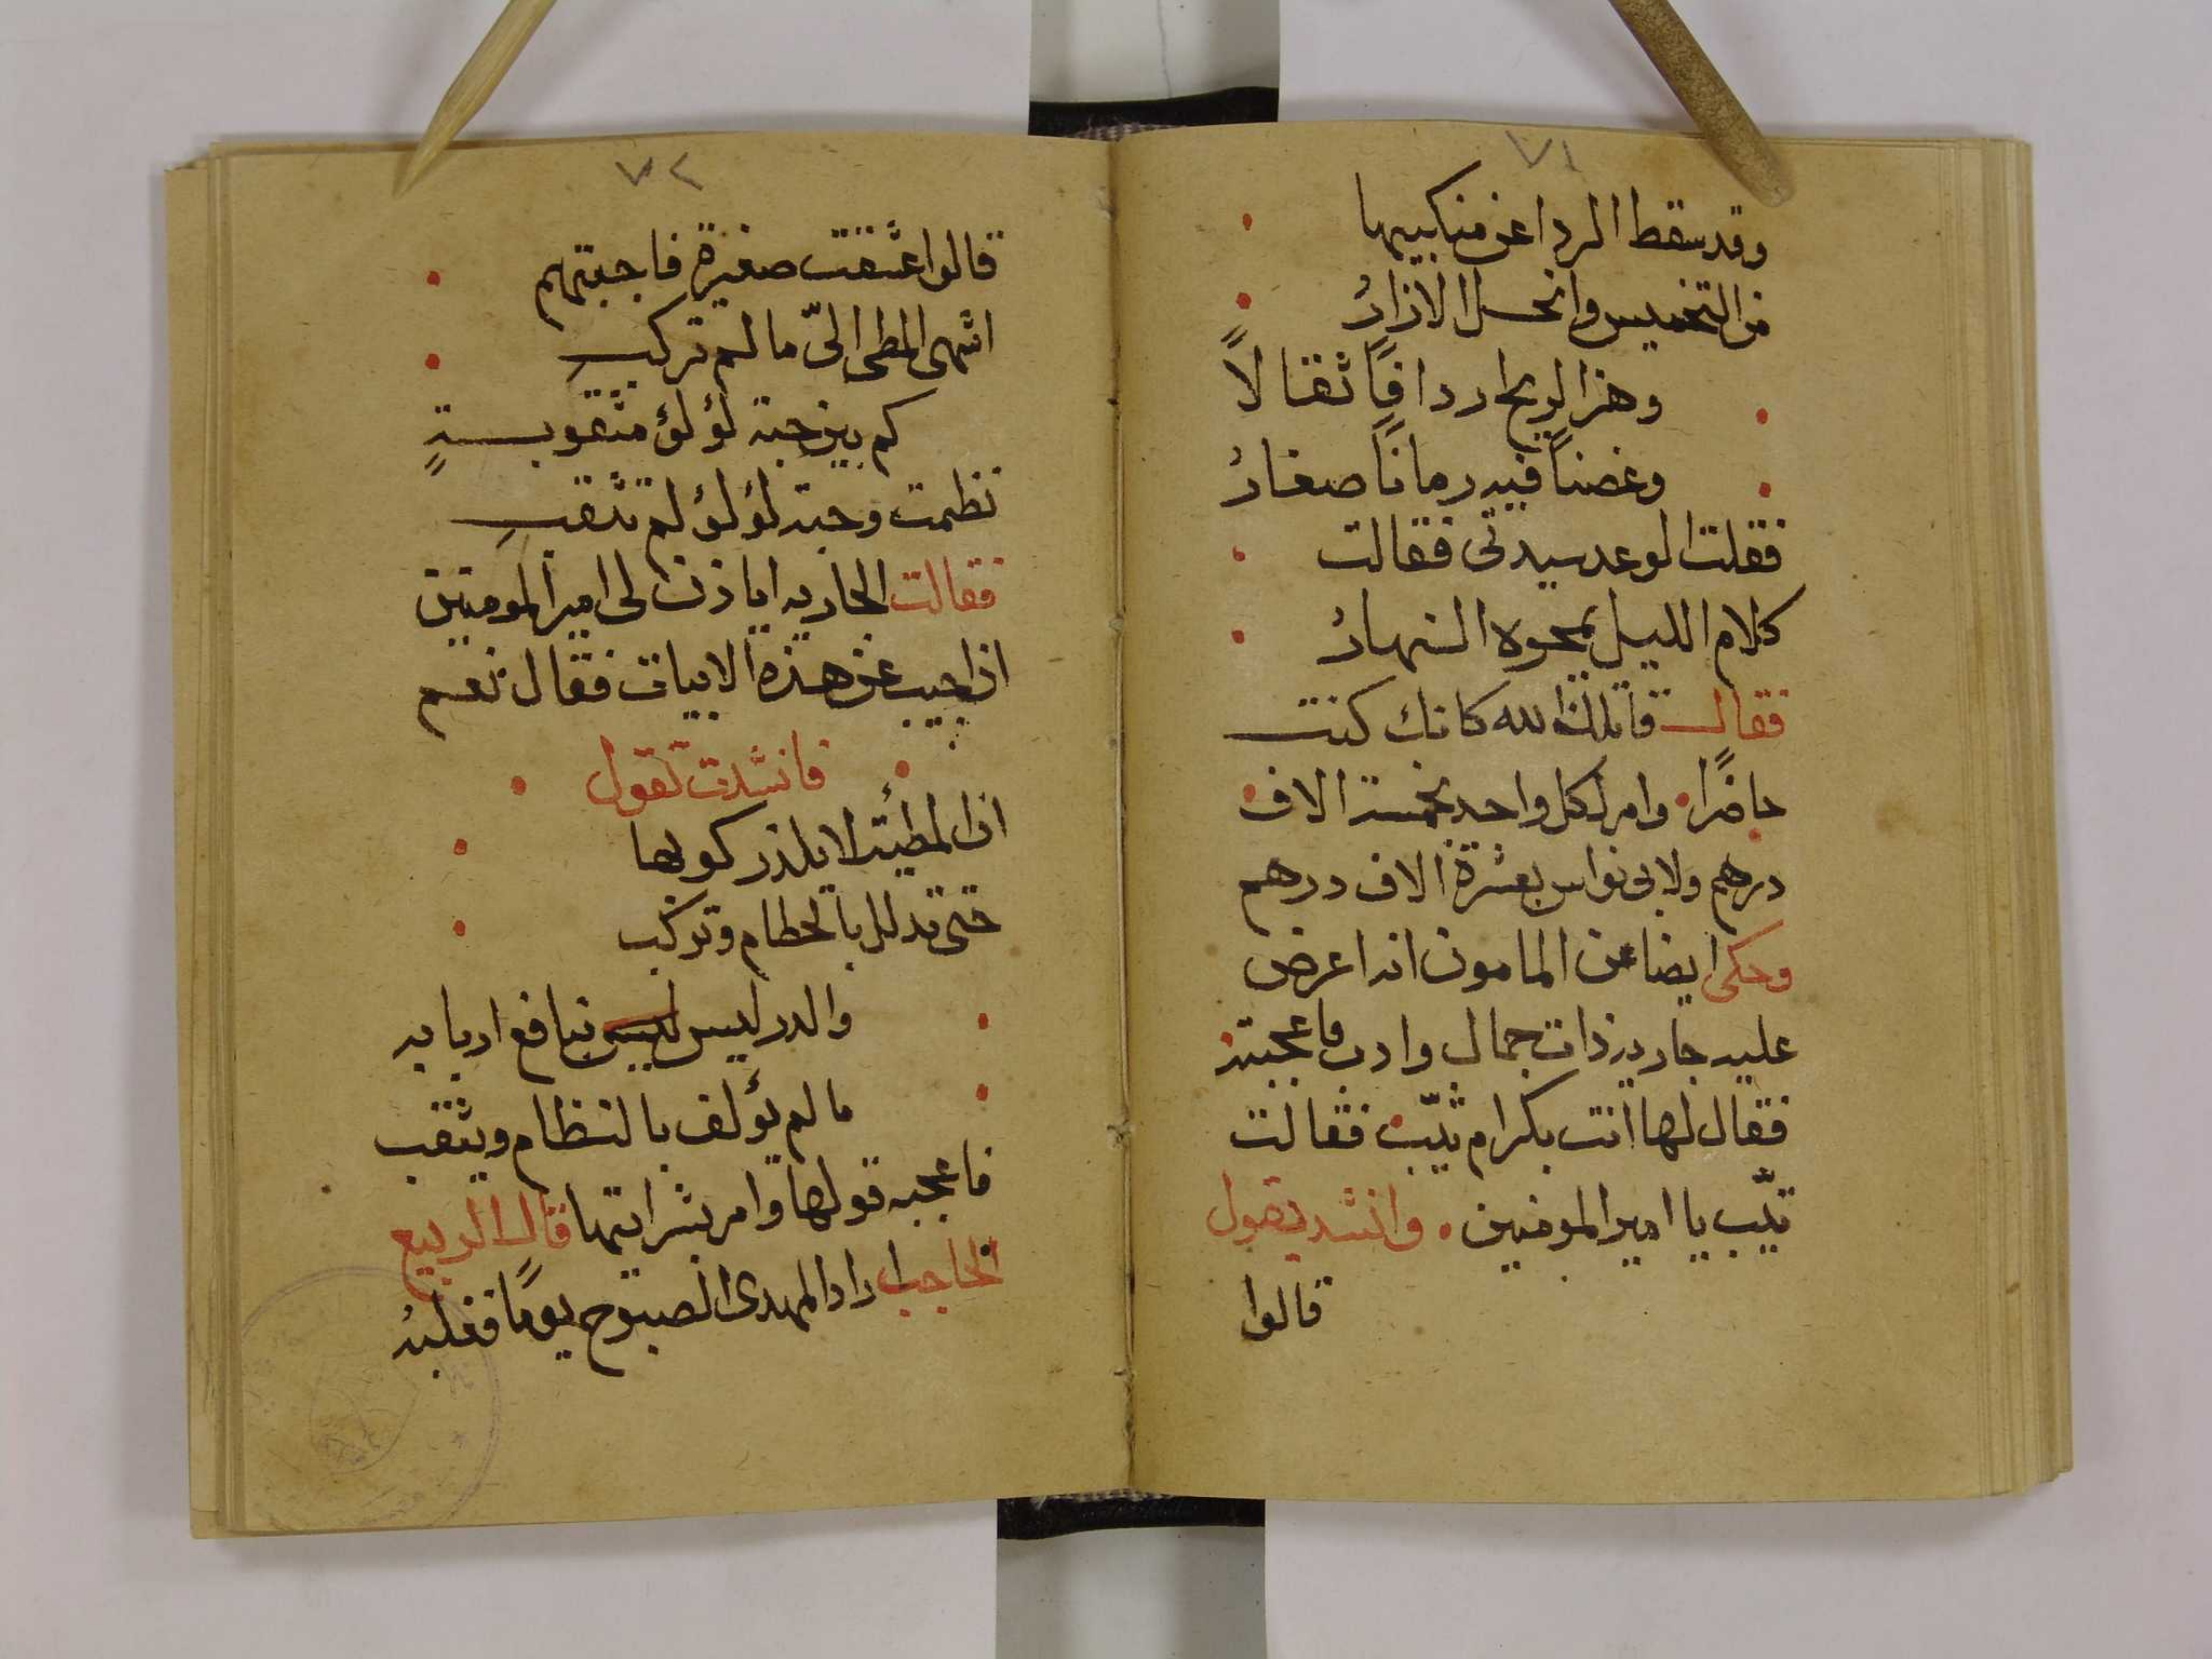 ٧١
وقد سقط الردا عن منكبيها
من التخميس وانحل الازارُ
وهز الريح اردافًا ثقالًا
وغصنًا فيه رمانًا صغارُ
فقلت الوعد سيدتى فقالت
كلام الليل يمحوه النهارُ
فقال قاتلك الله كانك كنت
حاضرًا وامر لكل واحد بخمسة الاف
درهم ولابى نواس بعشرة الاف درهم
وحكى ايضا عن المامون انه اعرض
عليه جاريه ذات جمال وادب فاعجبته
فقال لها انت بكر ام ثيّب فقالت
ثيّب يا امير المومنين وانشد يقول
قالوا
٧٢
قالوا عشقت صغيرة فاجبتهم
اشهى المطى الىّ ما لم تركب
كم بين حبة لؤلؤ مثقوبةٍ
نظمت وحبة لؤلؤ لم تثقبِ
فقالت الجاريه اياذن لى امير المومنين
ان اجيب عن هذه الابيات فقال نعم
فانشدت تقول
ان المطيّة لا يلذ ركوبها
حتى تذلل بالخطام وتركب
والدر ليس ليس بنافع اربابه
ما لم يؤلف بالنظام ويثقب
فاعجبه قولها وامر بشرايتها قال الربيع
الحاجب اراد المهدى الصبوح يومًا فغلبهُ